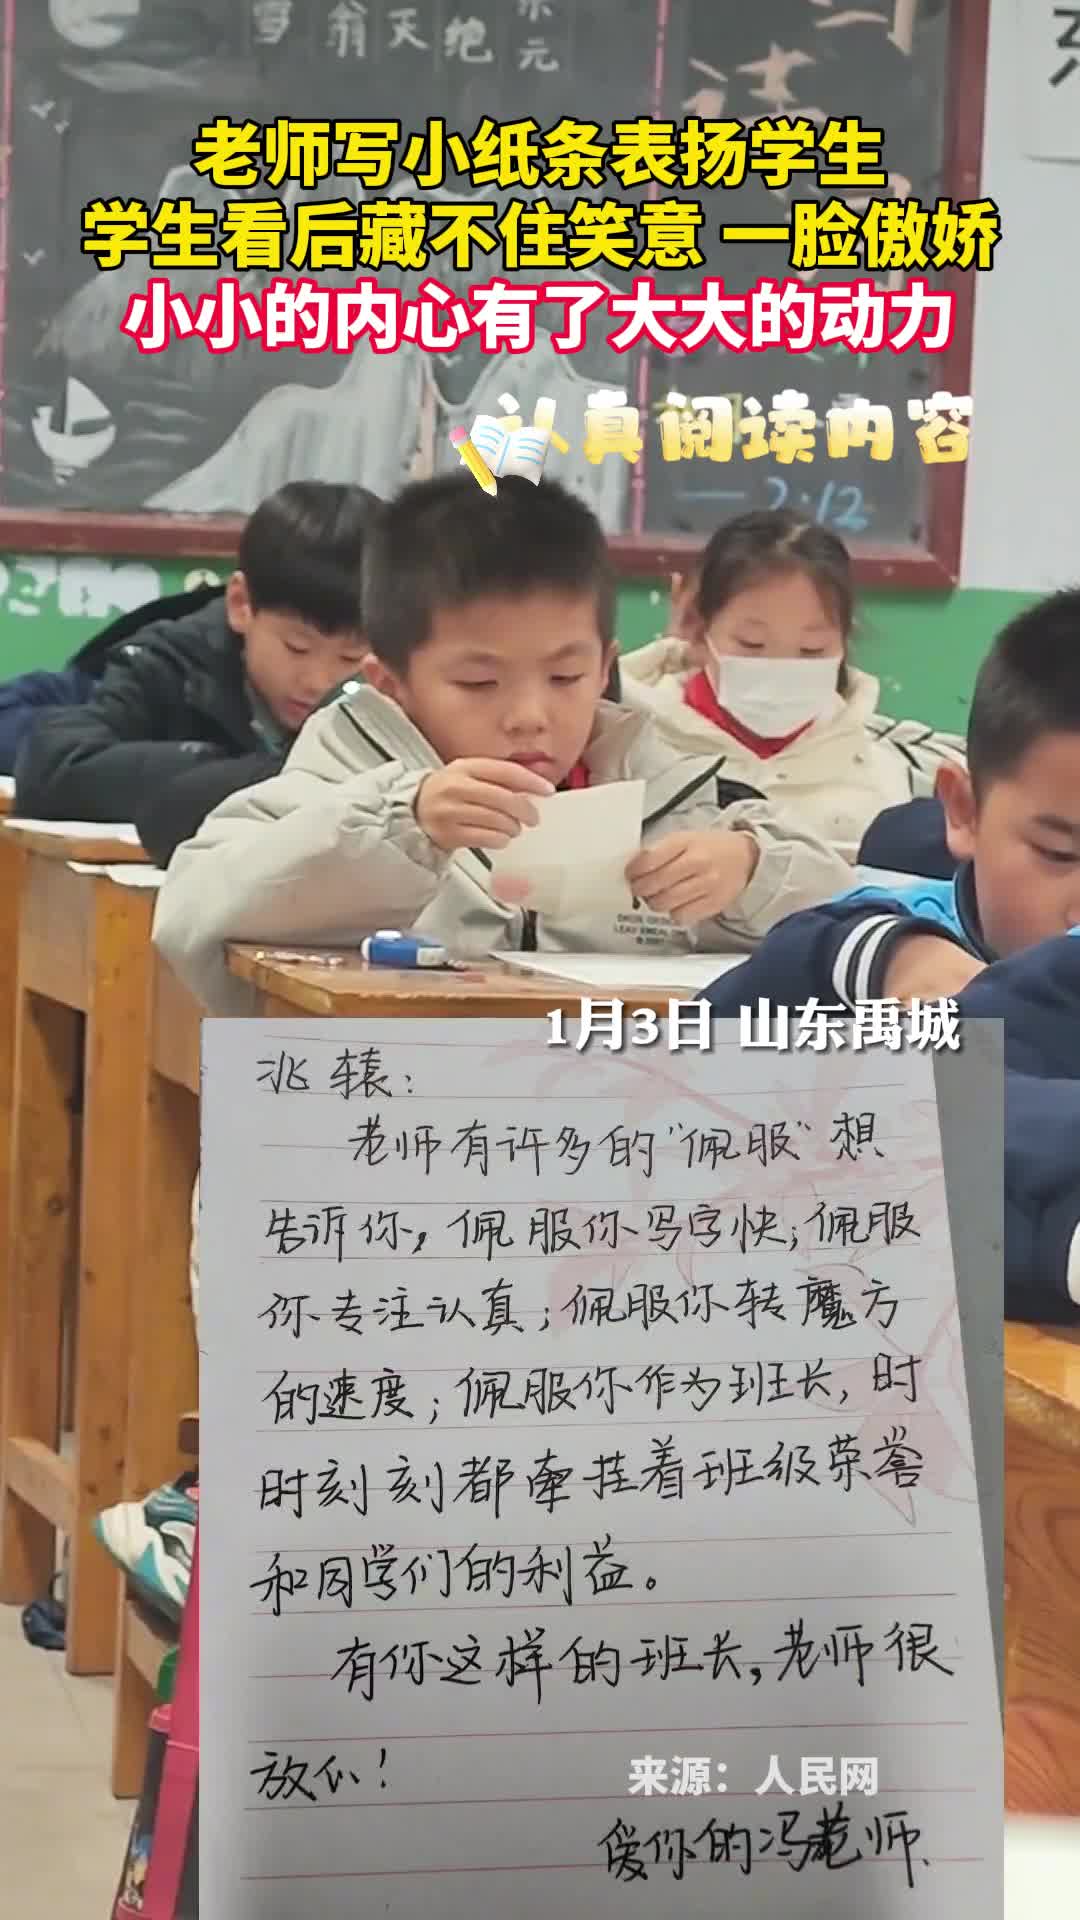 雪 翁 天 绝
元
老师写小纸条表扬学生
学生看后藏不住笑意 一脸傲娇
小小的内心有了大大的动力
认真阅读内容
2.12
1月3日 山东禹城
兆辕:
老师有许多的“佩服”想
告诉你，佩服你写字快；佩服
你专注认真；佩服你转魔方
的速度；佩服你作为班长，时
时刻刻都牵挂着班级荣誉
和同学们的利益。
有你这样的班长，老师很
放心！
来源：人民网
爱你的冯老师